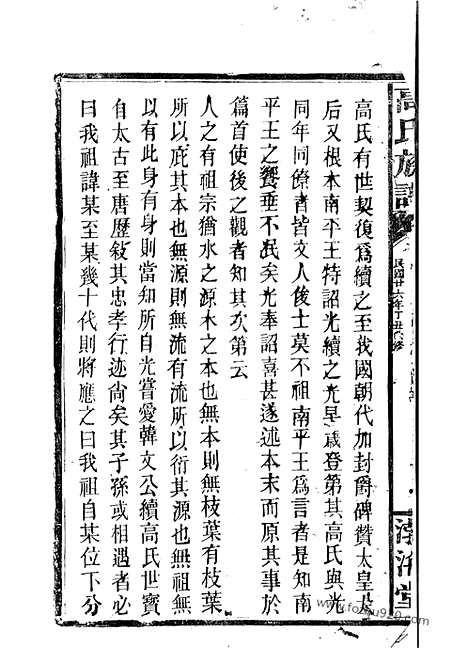 高氏族譜
民國廿六年丁丑六修
渤海堂
高氏有世契復爲續之至我國朝代加封爵碑贊太皇太
后又根本南平王特詔光續之光早歲登第其高氏與光
同年同僚者皆文人俊士莫不祖南平王爲言者是知南
平王之饗垂不泯矣光奉詔喜甚遂述本末而原其事於
篇首使後之觀者知其次第云
人之有祖宗猶水之源木之本也無本則無枝葉有枝葉
所以庇其本也無源則無流有流所以衍其源也無祖無
以有此身有身則當知所自光嘗愛韓文公續高氏世實
自太古至唐歷敍其忠孝行迹尙矣其子孫或相遇者必
曰我祖諱某至某幾十代則將應之曰我祖自某位下分
www.fozupu920.com